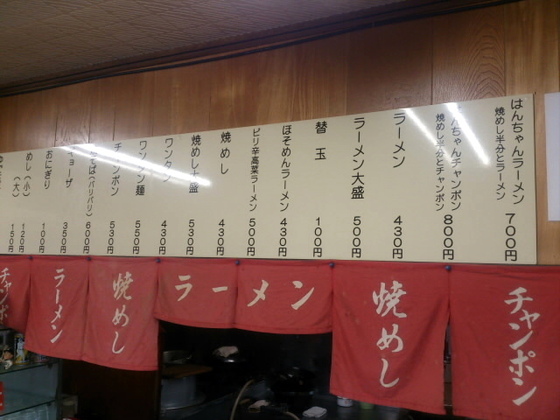 はんちゃんラーメン 700円
焼めし半分とラーメン
んちゃんチャンポン 800円
焼めし半分とチャンポン
ラーメン 430円
ラーメン大盛 500円
替玉 100円
ほそめんラーメン 430円
ピリ辛高菜ラーメン 500円
焼めし 430円
焼めし大盛 530円
ワンタン 430円
ワンタン麺 550円
チャンポン 530円
そば(バリバリ) 600円
ョーザ 350円
おにぎり 100円
めし(小) 120円
(大) 150円
チャンポン
焼めし
ラーメン
焼めし
ラーメン
チャンポ